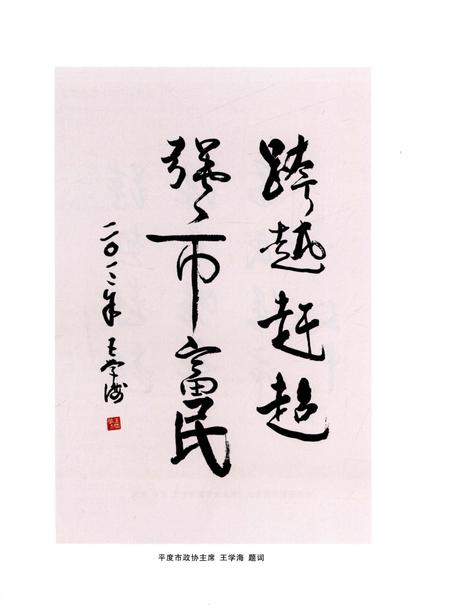 跨越赶超
强市富民
二〇一二年 王学海
平度市政协主席 王学海 题词